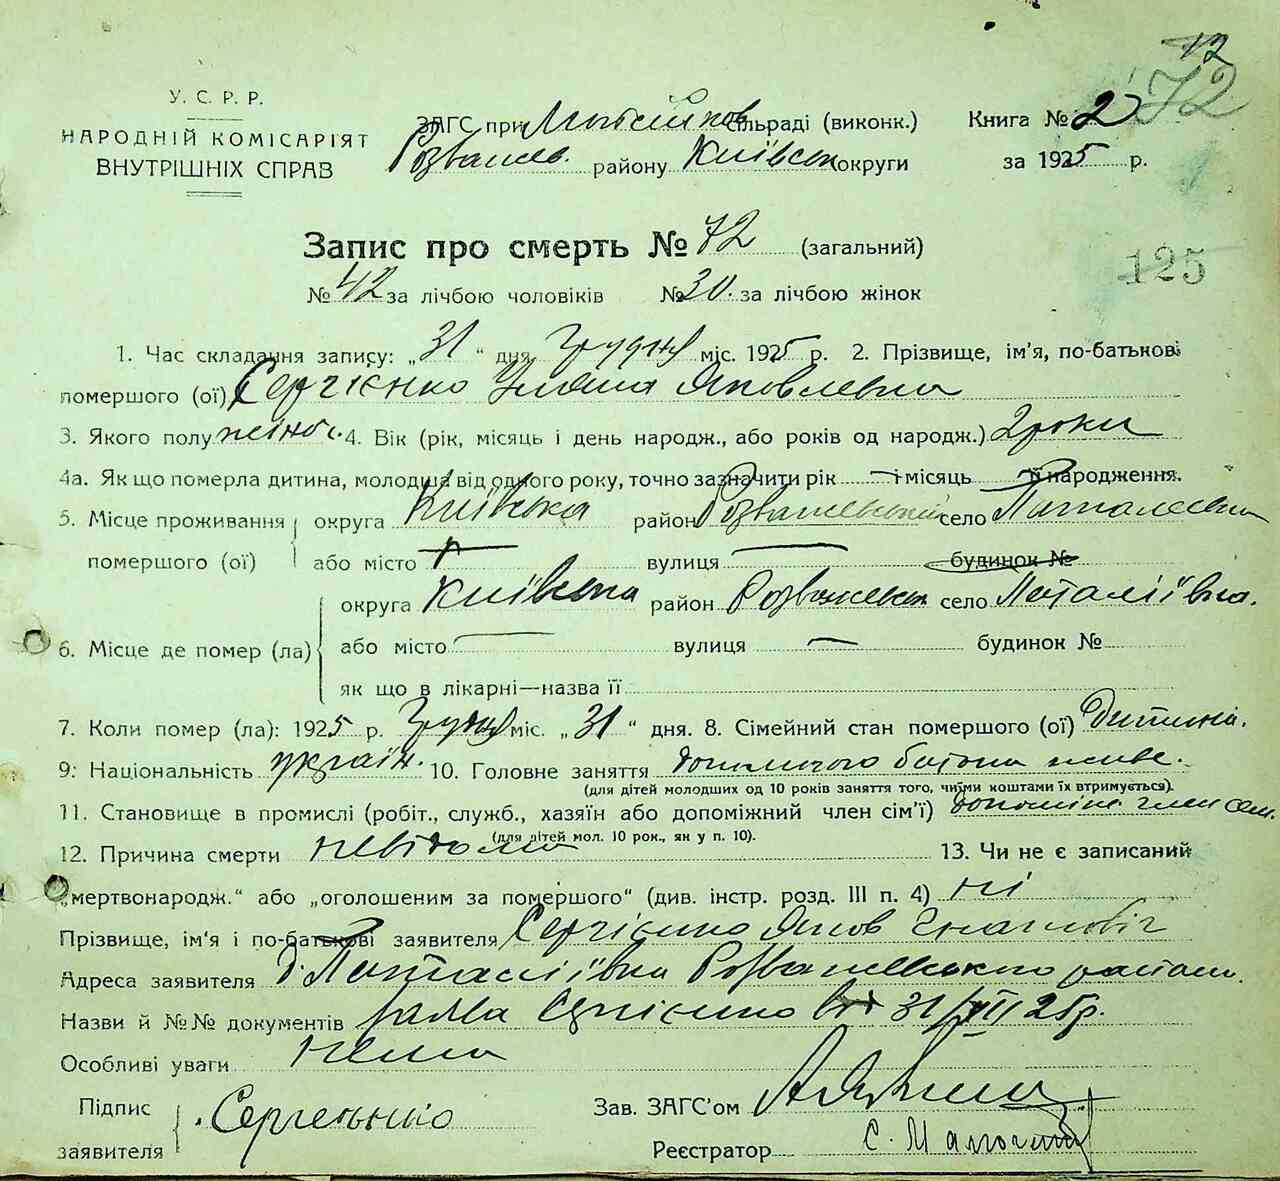 12
72
У. С. Р. Р.
НАРОДНІЙ КОМІСАРІЯТ
ВНУТРІШНІХ СПРАВ
ЗАГС при сільраді (виконк.) Книга № 2
Розважев. району Київськ округи за 1925 р.
Запис про смерть № 72 (загальний)
125
№ 42 за лічбою чоловіків № 30. за лічбою жінок
1. Час складання запису: „31“ дня Грудня міс. 1925 р. 2. Прізвище, ім'я, по-батькові
помершого (ої) Сергієнко Уляна Яковлевна
3. Якого полу жіноч. 4. Вік (рік, місяць і день народж., або років од народж.) 2 роки
4а. Як що померла дитина, молодша від одного року, точно зазначити рік — і місяць її народження.
5. Місце проживання округа Київська район Розважевський село
помершого (ої) або місто — вулиця — будинок №
округа Київська район Розважевськ село Наталіївка.
6. Місце де помер (ла) або місто — вулиця — будинок №
як що в лікарні—назва її
7. Коли помер (ла): 1925 р. Грудня міс. „31“ дня. 8. Сімейний стан помершого (ої) Дитина.
9. Національність україн. 10. Головне заняття допомогою батька живе.
(для дітей молодших од 10 років заняття того, чиїми коштами їх втримується).
11. Становище в промислі (робіт., служб., хазяїн або допоміжний член сім'ї) допоміж. член сем.
(для дітей мол. 10 рок., як у п. 10).
12. Причина смерти невідома 13. Чи не є записаний
„мертвонародж.“ або „оголошеним за помершого“ (див. інстр. розд. III п. 4) ні
Прізвище, ім'я і по-батькові заявителя Сергієнко Яков
Адреса заявителя д. Наталіївка Розважевського району.
Назви й №№ документів заява Сергієнко від 31/XII 25р.
Особливі уваги нема
Підпис Зав. ЗАГС'ом
заявителя Реєстратор С.